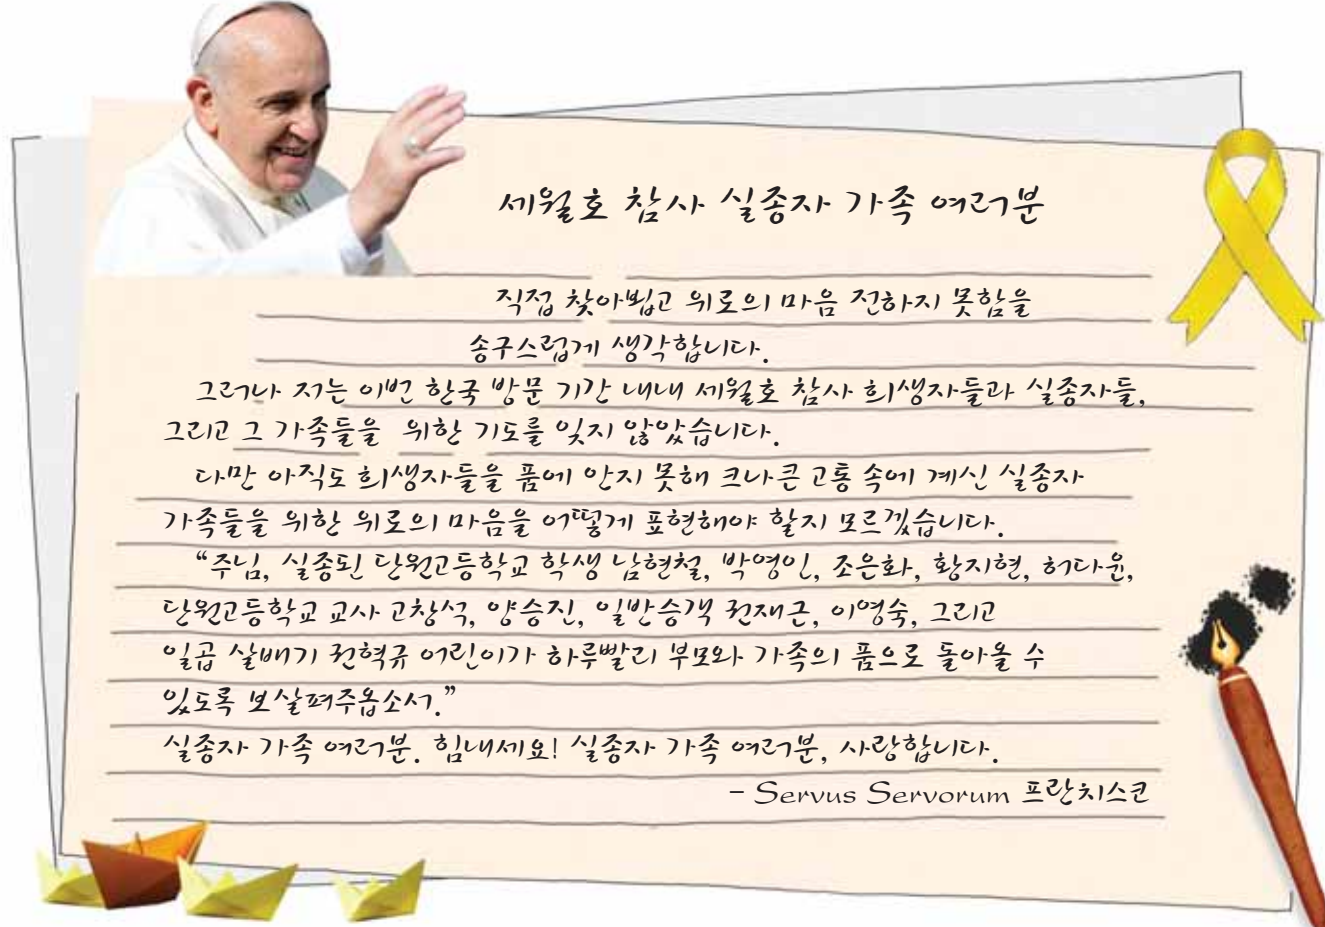 세월호 참사 실종자 가족 여러분
직접 찾아뵙고 위로의 마음 전하지 못함을
송구스럽게 생각합니다.
그러나 저는 이번 한국 방문 기간 내내 세월호 참사 희생자들과 실종자들,
그리고 그 가족들을 위한 기도를 잊지 않았습니다.
다만 아직도 희생자들을 품에 안지 못해 크나큰 고통 속에 계신 실종자
가족들을 위한 위로의 마음을 어떻게 표현해야 할지 모르겠습니다.
“주님, 실종된 단원고등학교 학생 남현철, 박영인, 조은화, 황지현, 허다윤,
단원고등학교 교사 고창석, 양승진, 일반승객 권재근, 이영숙, 그리고
일곱 살배기 권혁규 어린이가 하루빨리 부모와 가족의 품으로 돌아올 수
있도록 보살펴주옵소서.”
실종자 가족 여러분. 힘내세요! 실종자 가족 여러분, 사랑합니다.
- Servus Servorum 프란치스코